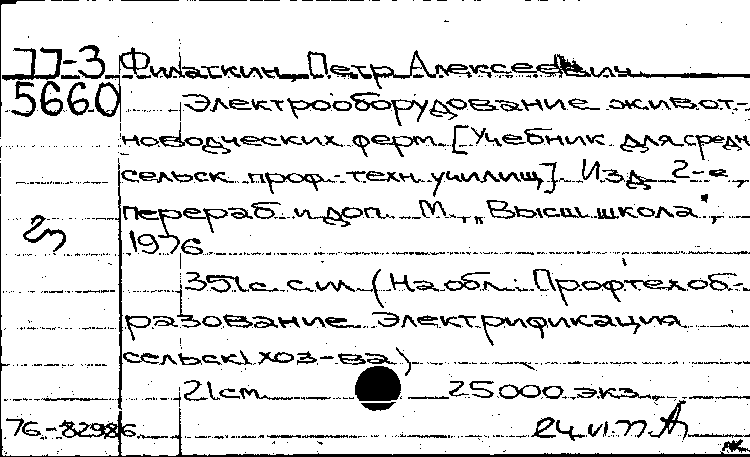 77-3 Филаткин, Петр Алексеевич
5660 Электрооборудование живот-
новодческих ферм. [Учебник для средн
сельск проф.-техн. училищ]. Изд. 2-е,
перераб. и доп. М., „Высш. школа",
1976
351 с. с ил. (На обл.: Профтехоб-
разование. Электрификация
сельск. хоз-ва)
21 см. 25 000 экз.
76-82986